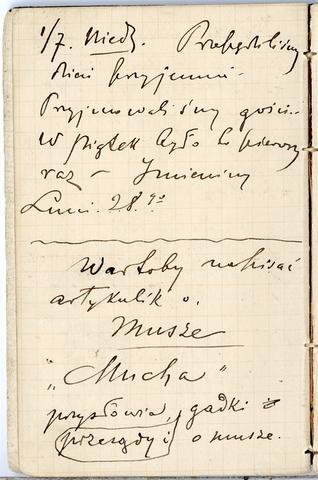 1/7. Niedz. Przebyliśmy
dzień przyjemnie.
Przyjmowaliśmy gości.
W piątek było to pierwszy
raz – Imieniny
Luni. 28.go
Wartoby napisać
artykulik o.
Musze
"Mucha"
przysłowia, gadki i
przesądy o musze.